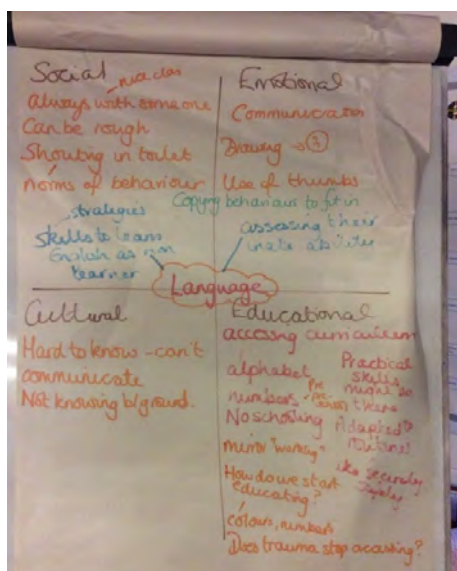 Social
always with someone
Can be rough
Shouting in toilet
norms of behaviour
strategies
Skills to learn
English as
learner
Emotional
Communication
Drawing → ?
Use of thumbs
Copying behaviour to fit in
assessing their
inate abilities
Language
Cultural
Hard to know - can't
communicate
Not knowing b/ground.
Educational
accessing curriculum
alphabet
numbers
No schooling
mirror "working"
How do we start
educating?
colours, numbers
Does trauma stop accessing?
Practical
skills
might be
there
Adapted?
routines
like security
safety